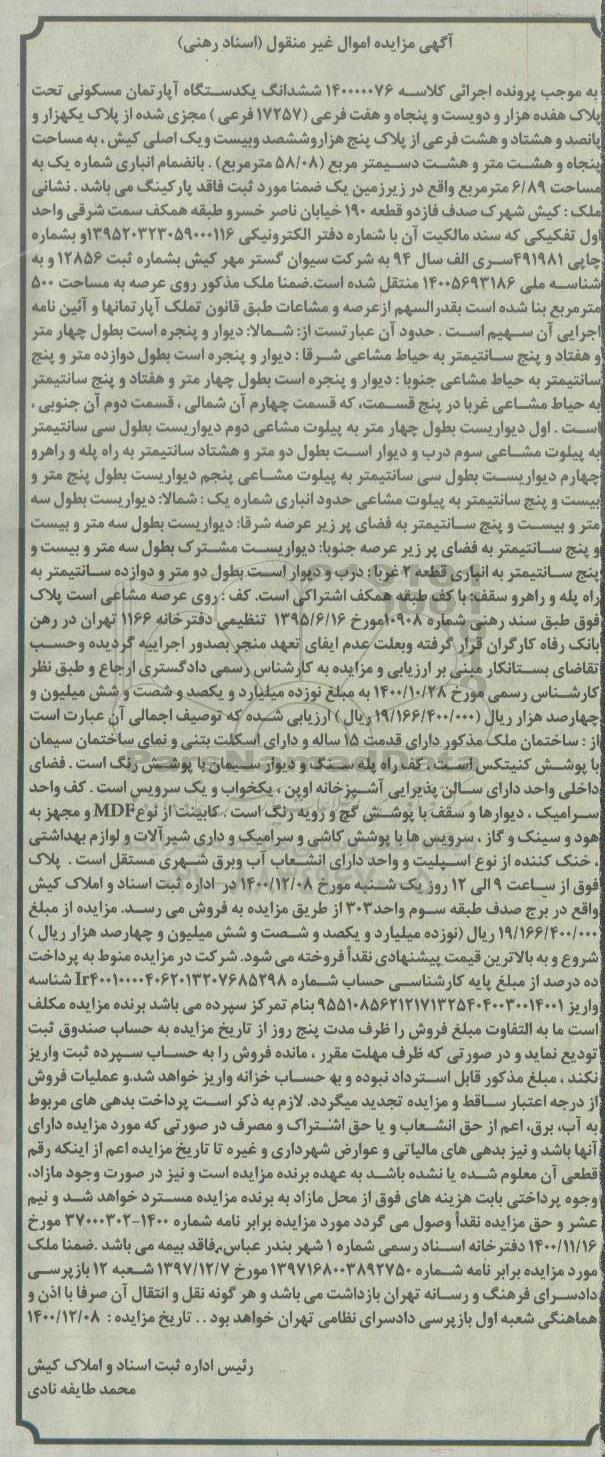 آگهی مزایده اموال غیر منقول (اسناد رهنی)
به موجب پرونده اجرائی کلاسه ۱۴۰۰۰۰۰۷۶ ششدانگ یکدستگاه آپارتمان مسکونی تحت
پلاک هفده هزار و دویست و پنجاه و هفت فرعی (۱۷۲۵۷ فرعی) مجزی شده از پلاک یکهزار و
پانصد و هشتاد و هشت فرعی از پلاک پنج هزاروششصد وبیست ویک اصلی کیش، به مساحت
پنجاه و هشت متر و هشت دسیمتر مربع (۵۸/۰۸ مترمربع) . بانضمام انباری شماره یک به
مساحت ۶/۸۹ مترمربع واقع در زیرزمین یک ضمنا مورد ثبت فاقد پارکینگ می باشد . نشانی
ملک : کیش شهرک صدف فازدو قطعه ۱۹۰ خیابان ناصر خسرو طبقه همکف سمت شرقی واحد
اول تفکیکی که سند مالکیت آن با شماره دفتر الکترونیکی ۱۳۹۵۲۰۳۲۳۰۵۹۰۰۰۱۱۶و بشماره
چاپی ۴۹۱۹۸۱سری الف سال ۹۴ به شرکت سیوان گستر مهر کیش بشماره ثبت ۱۲۸۵۶ و به
شناسه ملی ۱۴۰۰۵۶۹۳۱۸۶ منتقل شده است.ضمنا ملک مذکور روی عرصه به مساحت ۵۰۰
مترمربع بنا شده است بقدرالسهم ازعرصه و مشاعات طبق قانون تملک آپارتمانها و آئین نامه
اجرایی آن سهیم است . حدود آن عبارتست از: شمالا: دیوار و پنجره است بطول چهار متر
و هفتاد و پنج سانتیمتر به حیاط مشاعی شرقا : دیوار و پنجره است بطول دوازده متر و پنج
سانتیمتر به حیاط مشاعی جنوبا : دیوار و پنجره است بطول چهار متر و هفتاد و پنج سانتیمتر
به حیاط مشاعی غربا در پنج قسمت، که قسمت چهارم آن شمالی ، قسمت دوم آن جنوبی .
است . اول دیواریست بطول چهار متر به پیلوت مشاعی دوم دیواریست بطول سی سانتیمتر
به پیلوت مشاعی سوم درب و دیوار است بطول دو متر و هشتاد سانتیمتر به راه پله و راهرو
چهارم دیواریست بطول سی سانتیمتر به پیلوت مشاعی پنجم دیواریست بطول پنج متر و
بیست و پنج سانتیمتر به پیلوت مشاعی حدود انباری شماره یک : شمالا: دیواریست بطول سه
متر و بیست و پنج سانتیمتر به فضای پر زیر عرصه شرقا: دیواریست بطول سه متر و بیست
و پنج سانتیمتر به فضای پر زیر عرصه جنوبا: دیواریست مشترک بطول سه متر و بیست و
پنج سانتیمتر به انباری قطعه ۲ غربا : درب و دیوار است بطول دو متر و دوازده سانتیمتر به
راه پله و راهرو سقف: با کف طبقه همکف اشتراکی است. کف : روی عرصه مشاعی است پلاک
فوق طبق سند رهنی شماره ۱۰۹۰۸مورخ ۱۳۹۵/۶/۱۶ تنظیمی دفترخانه ۱۱۶۶ تهران در رهن
بانک رفاه کارگران قرار گرفته وبعلت عدم ایفای تعهد منجر بصدور اجراییه گردیده وحسب
تقاضای بستانکار مبنی بر ارزیابی و مزایده به کارشناس رسمی دادگستری ارجاع و طبق نظر
کارشناس رسمی مورخ ۱۴۰۰/۱۰/۲۸ به مبلغ نوزده میلیارد و یکصد و شصت و شش میلیون و
چهارصد هزار ریال (۱۹/۱۶۶/۴۰۰/۰۰۰ ریال ) ارزیابی شده که توصیف اجمالی آن عبارت است
از : ساختمان ملک مذکور دارای قدمت ۱۵ ساله و دارای اسکلت بتنی و نمای ساختمان سیمان
با پوشش کنیتکس است . کف راه پله سنگ و دیوار سیمان با پوشش رنگ است . فضای
داخلی واحد دارای سالن پذیرایی آشپزخانه اوپن ، یکخواب و یک سرویس است . کف واحد
سرامیک ، دیوارها و سقف با پوشش گچ و رویه رنگ است . کابینت از نوعMDF و مجهز به
هود و سینک و گاز ، سرویس ها با پوشش کاشی و سرامیک و داری شیرآلات و لوازم بهداشتی
، خنک کننده از نوع اسپلیت و واحد دارای انشعاب آب وبرق شهری مستقل است . پلاک
فوق از ساعت ۹ الی ۱۲ روز یک شنبه مورخ ۱۴۰۰/۱۲/۰۸ در اداره ثبت اسناد و املاک کیش
واقع در برج صدف طبقه سوم واحد۳۰۳ از طریق مزایده به فروش می رسد. مزایده از مبلغ
۱۹/۱۶۶/۴۰۰/۰۰۰ ریال (نوزده میلیارد و یکصد و شصت و شش میلیون و چهارصد هزار ریال )
شروع و به بالاترین قیمت پیشنهادی نقداً فروخته می شود. شرکت در مزایده منوط به پرداخت
ده درصد از مبلغ پایه کارشناسی حساب شماره Ir۴۰۰۱۰۰۰۰۴۰۶۲۰۱۳۲۰۷۶۸۵۲۹۸ شناسه
واریز ۹۵۵۱۰۸۵۶۲۱۲۱۷۱۳۲۵۴۰۴۰۰۳۰۰۱۴۰۰۱ بنام تمرکز سپرده می باشد برنده مزایده مکلف
است ما به التفاوت مبلغ فروش را ظرف مدت پنج روز از تاریخ مزایده به حساب صندوق ثبت
تودیع نماید و در صورتی که ظرف مهلت مقرر ، مانده فروش را به حساب سپرده ثبت واریز
نکند ، مبلغ مذکور قابل استرداد نبوده و به حساب خزانه واریز خواهد شد.و عملیات فروش
از درجه اعتبار ساقط و مزایده تجدید میگردد. لازم به ذکر است پرداخت بدهی های مربوط
به آب، برق، اعم از حق انشعاب و یا حق اشتراک و مصرف در صورتی که مورد مزایده دارای
آنها باشد و نیز بدهی های مالیاتی و عوارض شهرداری و غیره تا تاریخ مزایده اعم از اینکه رقم
قطعی آن معلوم شده یا نشده باشد به عهده برنده مزایده است و نیز در صورت وجود مازاد،
وجوه پرداختی بابت هزینه های فوق از محل مازاد به برنده مزایده مسترد خواهد شد و نیم
عشر و حق مزایده نقداً وصول می گردد مورد مزایده برابر نامه شماره ۱۴۰۰-۳۷۰۰۰۳۰۲ مورخ
۱۴۰۰/۱۱/۱۶ دفترخانه اسناد رسمی شماره ۱ شهر بندر عباس،فاقد بیمه می باشد .ضمنا ملک
مورد مزایده برابر نامه شماره ۱۳۹۷۱۶۸۰۰۳۸۹۲۷۵۰ مورخ ۱۳۹۷/۱۲/۷ شعبه ۱۲ بازپرسی
دادسرای فرهنگ و رسانه تهران بازداشت می باشد و هر گونه نقل و انتقال آن صرفا با اذن و
هماهنگی شعبه اول بازپرسی دادسرای نظامی تهران خواهد بود . . تاریخ مزایده : ۱۴۰۰/۱۲/۰۸
رئیس اداره ثبت اسناد و املاک کیش
محمد طایفه نادی